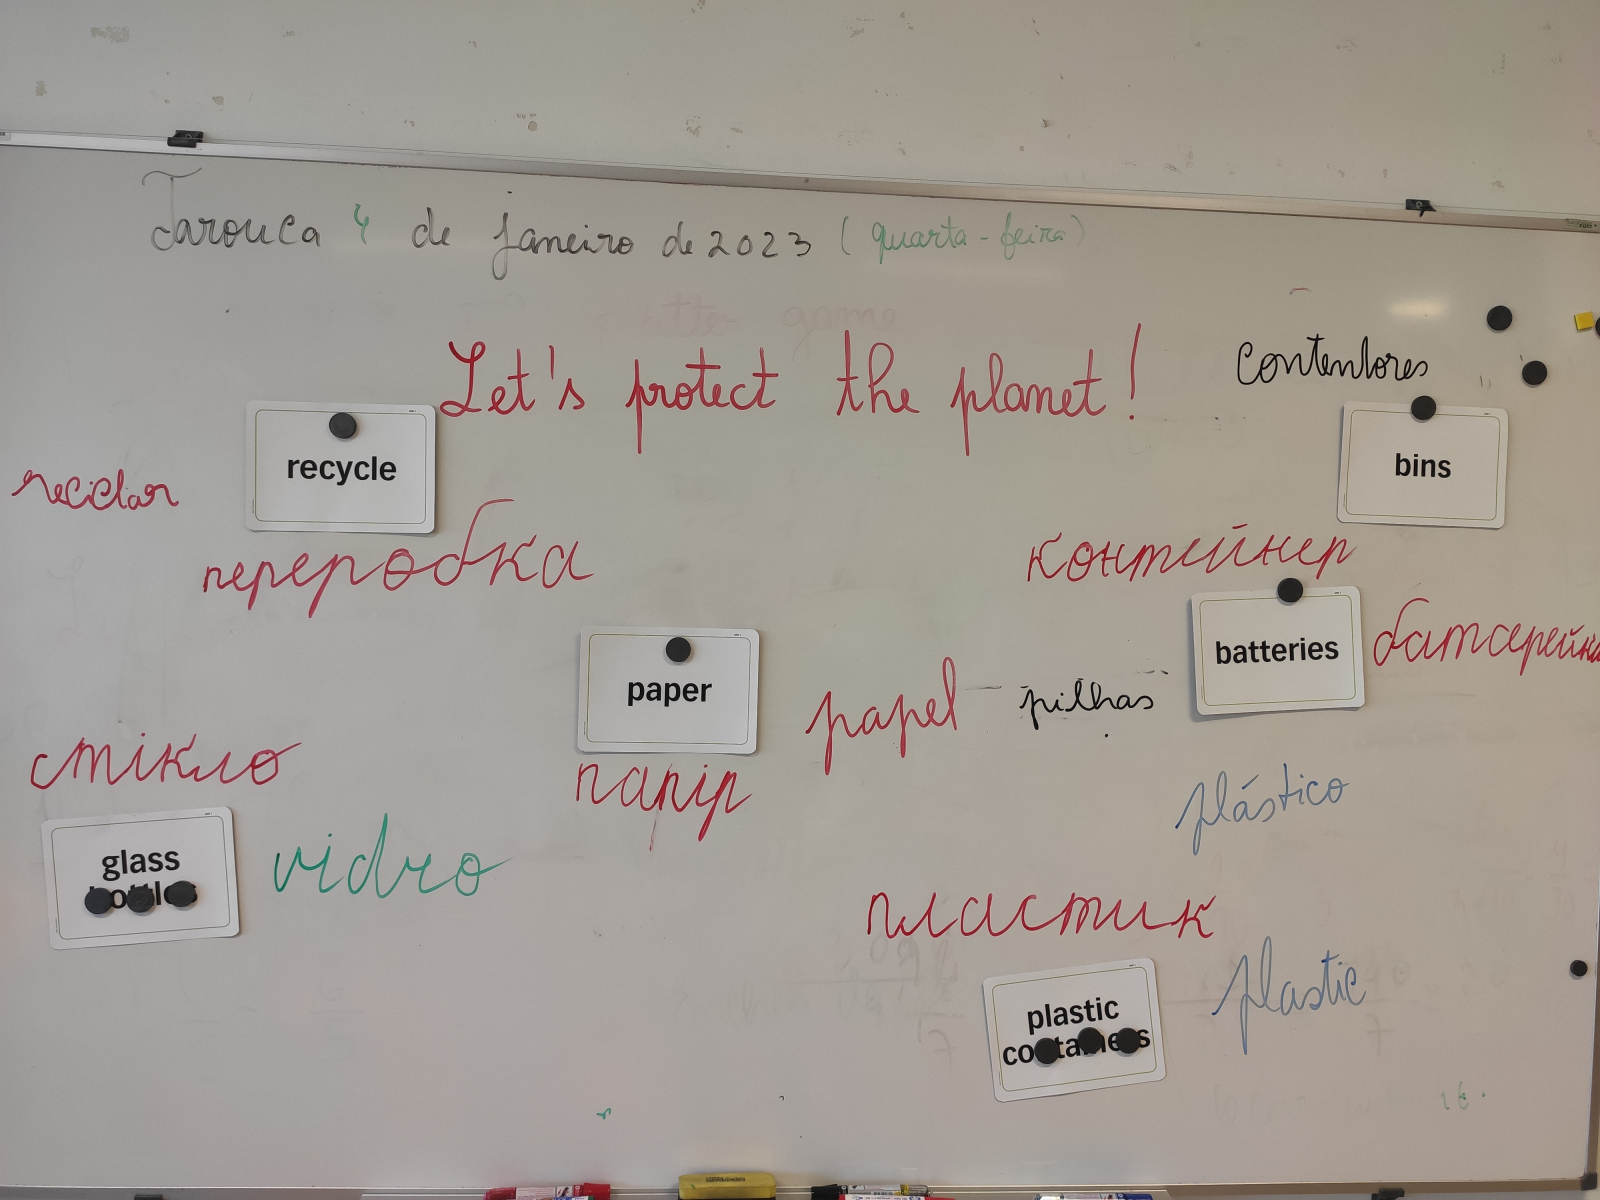 Tarouca 4 de janeiro de 2023 (quarta-feira)
Let's protect the planet!
contentores
recycle
bins
reciclar
переробка
контейнер
batteries
батерейка
paper
papel
pilhas
стікло
папір
plástico
glass
bottles
vidro
пластик
plastic
containers
plastic